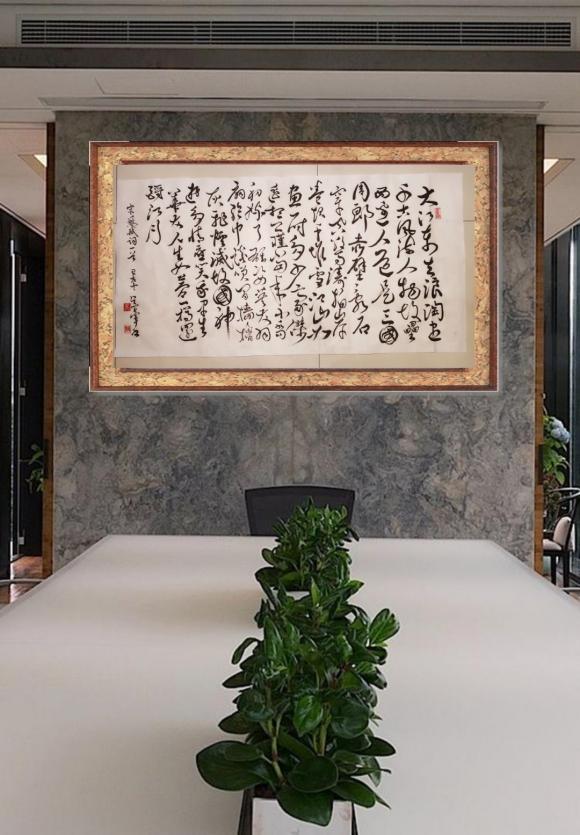 大江東去浪淘盡
千古風流人物故壘
西邊人道是三國
周郎赤壁亂石
穿空驚濤拍岸
卷起千堆雪江山如
畫一時多少豪傑
遥想公瑾當年小喬
初嫁了雄姿英發羽
扇綸巾談笑間檣櫓
灰飛煙滅故國神
遊多情應笑我早生
華發人生如夢一樽還
酹江月
宋蘇軾詞一首